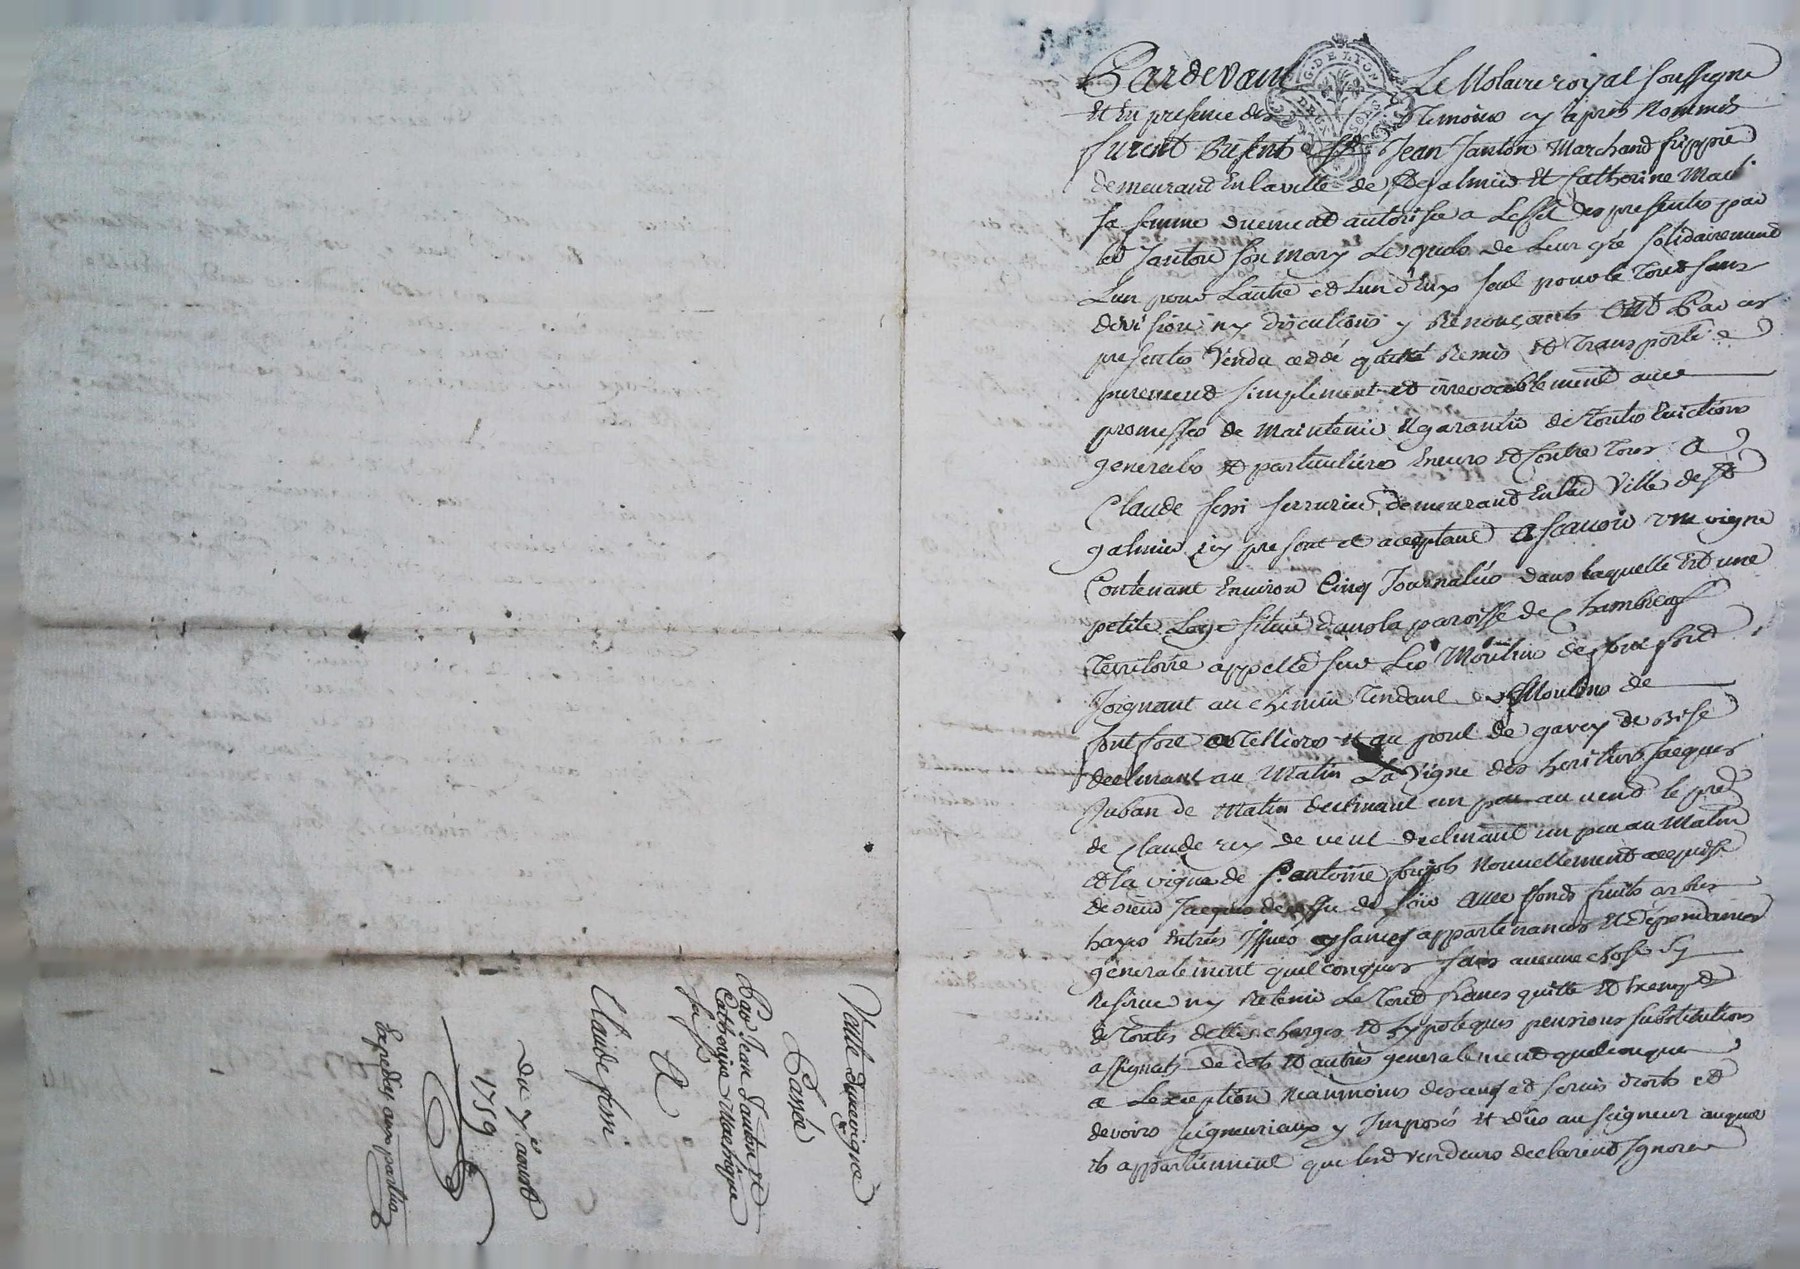 Pardevant Le Notaire royal soussigné
Et En presence des Temoins cy apres Nommés
furent Presents Sr. Jean Janton Marchand frippié
demeurant En la ville de St galmier Et Catherine
sa femme duement autorisée a Leffet des presentes par
led Janton son mary Lesquels de Leur gré solidairement
Lun pour Lautre et Lun d'Eux seul pour le Tout sans
division ny discutions y Renonçants Ont Par ces
presentes Vendu ceddé quitté Remis et Transporté
purement simplement et irrevocablement avec
promesses de Maintenir Et garantir de Toutes Evictions
generales et particulieres Envers et Contre Tous A
Claude fessi serrurier demeurant En lad Ville de St
galmier icy present et aceptant A scavoir une vigne
Contenant Environ Cinq Journalées dans laquelle Est une
petite Loge située dans la paroisse de Chambœuf
Territoire appellé sur Les Moulins de
Joignant au chemin Tendant des Moulins de
et au pont de gavey de Bise
declinant au Matin La Vigne des heritiers Jacques
Juban de Matin declinant un peu au vent le pré
de Claude rey de vent declinant un peu au Matin
et la vigne de Sr. antoine Nouvellement acquise
de sieur Jacques de soir avec fonds fruits arbres
hayes Entrées Issues aysances appartenances Et Dépendances
generalement quelconques sans aucune chose s'y
Reserver ny Retenir Le Tout francs quitte et Exempt
de Toutes dettes charges et hypoteques pensions substitutions
assignats de dots et autres generalement quelconques
a Lexception Neaumoins des cens et servis droits et
devoirs seigneuriaux y Imposés et dûs au seigneur auquel
ils appartiennent que lesd vendeurs declarent Ignorer
Vente dune vigne
Passée
Par Jean Janton et
Catherine
sa fe
A
Claude fessi
Du 7e aoust
1759
Expedié aux parties
G. DE LYON
DEUX SOLS